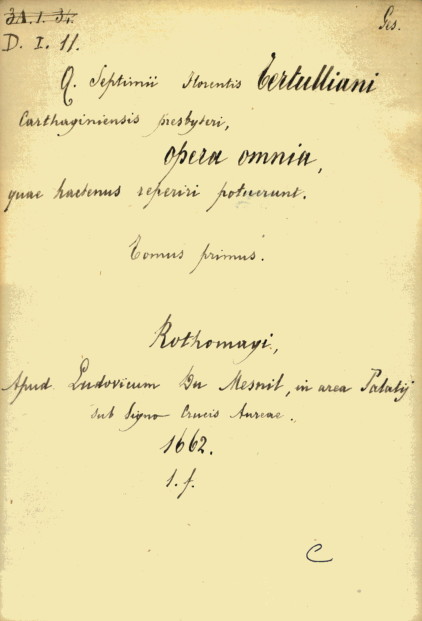 3A. 1. 34. Ges.
D. I. 11.
Q. Septimii Florentis Tertulliani
Carthaginiensis presbyteri,
opera omnia,
quae hactenus reperiri potuerunt.
Tomus primus.
Rothomagi,
Apud Ludovicum Du Mesnil, in area Palatij
sub Signo Crucis Aureae.
1662.
1. f.
C